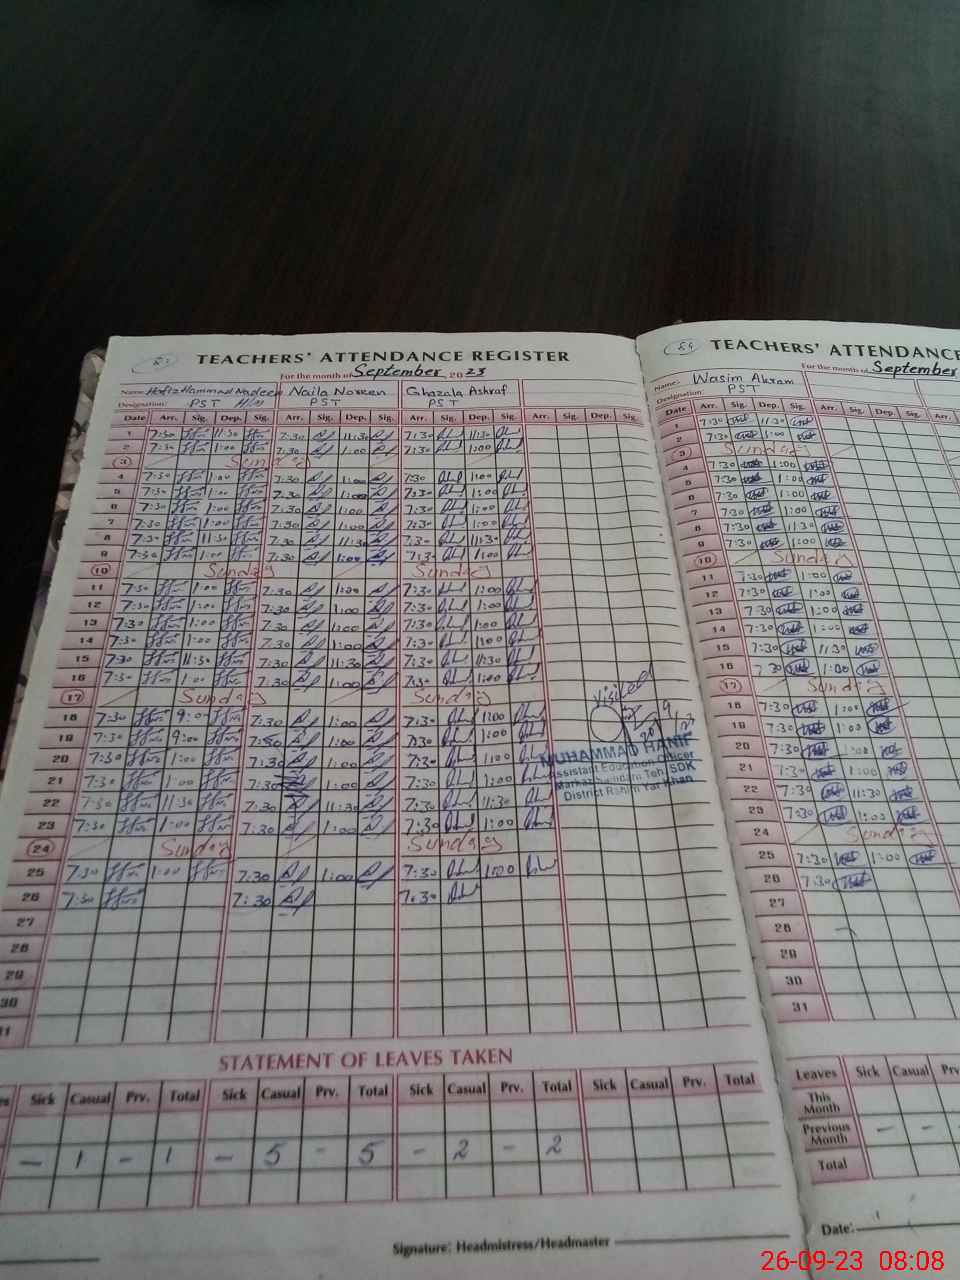 TEACHERS' ATTENDANCE REGISTER
For the month of September 2023
Name: Hafiz Hammad Nadeem Naila Noreen Ghazala Ashraf
Designation: PST PST PST
Date Arr. Sig. Dep. Sig. Arr. Sig. Dep. Sig. Arr. Sig. Dep. Sig. Arr. Sig. Dep. Sig.
1 7:30 11:30 7:30 11:30 7:30 11:30
2 7:30 1:00 7:30 1:00 7:30 1:00
3 Sunday
4 7:30 1:00 7:30 1:00 7:30 1:00
5 7:30 1:00 7:30 1:00 7:30 1:00
6 7:30 1:00 7:30 1:00 7:30 1:00
7 7:30 1:00 7:30 1:00 7:30 1:00
8 7:30 11:30 7:30 11:30 7:30 11:30
9 7:30 1:00 7:30 1:00 7:30 1:00
10 Sunday Sunday
11 7:30 1:00 7:30 1:00 7:30 1:00
12 7:30 1:00 7:30 1:00 7:30 1:00
13 7:30 1:00 7:30 1:00 7:30 1:00
14 7:30 1:00 7:30 1:00 7:30 1:00
15 7:30 11:30 7:30 11:30 7:30 11:30
16 7:30 1:00 7:30 1:00 7:30 1:00
17 Sunday Sunday
18 7:30 9:00 7:30 1:00 7:30 1:00
19 7:30 9:00 7:30 1:00 7:30 1:00
20 7:30 1:00 7:30 1:00 7:30 1:00
21 7:30 1:00 7:30 1:00 7:30 1:00
22 7:30 11:30 7:30 11:30 7:30 11:30
23 7:30 1:00 7:30 1:00 7:30 1:00
24 Sunday Sunday
25 7:30 1:00 7:30 1:00 7:30 1:00
26 7:30 7:30 7:30
27
28
29
30
31
Visited
MUHAMMAD HANIF
Assistant Education Officer
District Rahim Yar Khan
STATEMENT OF LEAVES TAKEN
Sick Casual Prv. Total Sick Casual Prv. Total Sick Casual Prv. Total Sick Casual Prv. Total
- 1 - 1 - 5 - 5 - 2 - 2
Signature: Headmistress/Headmaster
54 TEACHERS' ATTENDANCE
For the month of September
Name: Wasim Akram
Designation: PST
Date Arr. Sig. Dep. Sig. Arr. Sig. Dep. Sig. Arr.
1 7:30 11:30
2 7:30 1:00
3 Sunday
4 7:30 1:00
5 7:30 1:00
6 7:30 1:00
7 7:30 1:00
8 7:30 11:30
9 7:30 1:00
10 Sunday
11 7:30 1:00
12 7:30 1:00
13 7:30 1:00
14 7:30 1:00
15 7:30 11:30
16 7:30 1:00
17 Sunday
18 7:30 1:00
19 7:30 1:00
20 7:30 1:00
21 7:30 1:00
22 7:30 11:30
23 7:30
24 Sunday
25 7:30 1:00
26 7:30
27
28
29
30
31
Leaves Sick Casual
This Month
Previous Month - -
Total
Date:
26-09-23 08:08